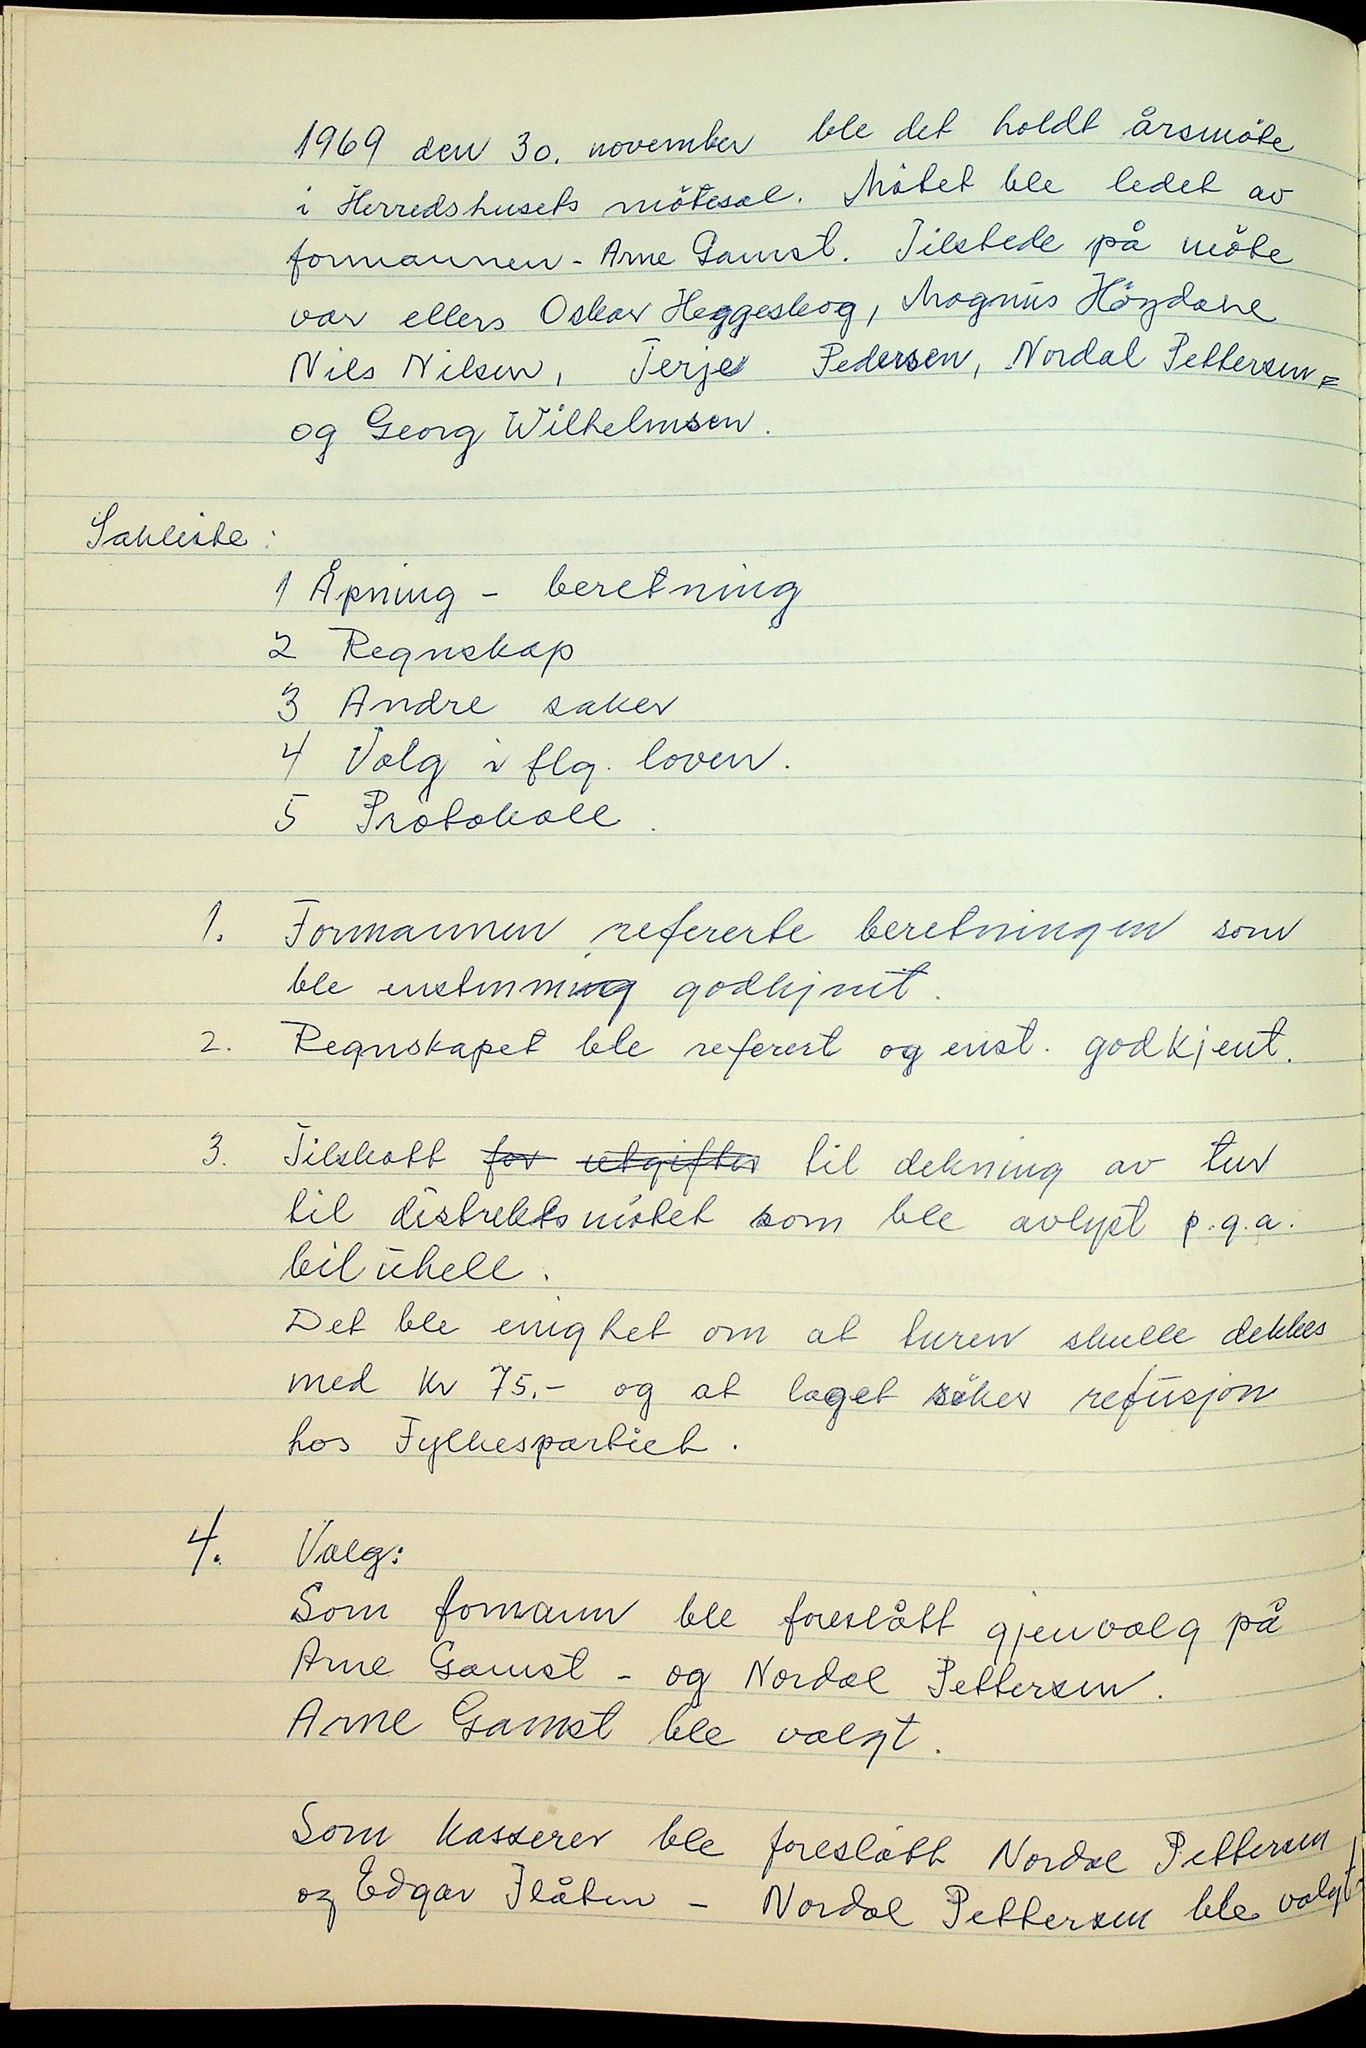 1969 den 30. november ble det holdt årsmöte
i Herredshusets mötesal. Mötet ble ledet av
formannen - Arne Gamst. Tilstede på möte
var ellers Oskar Heggeskog, Magnus Höydahl
Nils Nilsen, Terje Pedersen, Nordal Pettersen
og Georg Wilhelmsen.
Sakliste:
1 Åpning - beretning
2 Regnskap
3 Andre saker
4 Valg i flg. loven.
5 Protokoll.
1. Formannen refererte beretningen som
ble enstemmig godkjent.
2. Regnskapet ble referert og enst. godkjent.
3. Tilskott for utgifter til dekning av tur
til distriktsmötet som ble avlyst p.g.a.
bil uhell.
Det ble enighet om at turen skulle dekkes
med kr 75.- og at laget söker refusjon
hos Fylkespartiet.
4. Valg:
Som fomann ble foreslått gjenvalg på
Arne Gamst - og Nordal Pettersen.
Arne Gamst ble valgt.
Som kasserer ble foreslått Nordal Pettersen
og Edgar Flåten - Nordal Pettersen ble valgt.